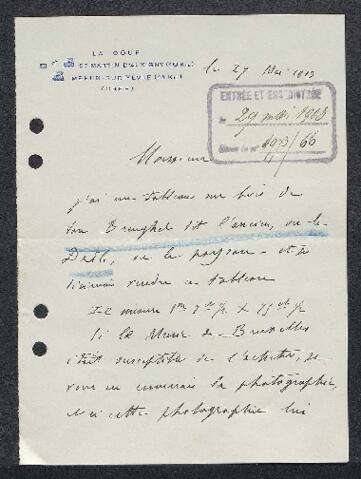 LA COUR
ST MARTIN D'AUXIGNY (CHER)
MEHUN-SUR-YÈVRE
(CHER)
le 27 Mai 1913
ENTRÉE ET ENREGISTRÉE
le 29 mai 1913
sous le n° 1913/66
Monsieur
j'ai un tableau sur bois de
Breughel dit l'ancien, ou le
Drôle, ou le paysan - et je
désirais vendre ce tableau
Il mesure 1m 2 c/m x 75 c/m
Si le Musée de Bruxelles
était susceptible de l'acheter, je
vous en enverrais la photographie,
et si cette photographie lui